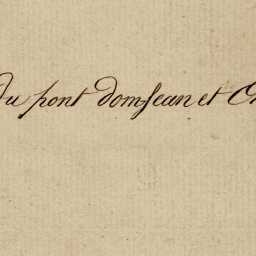 du pont domJean et